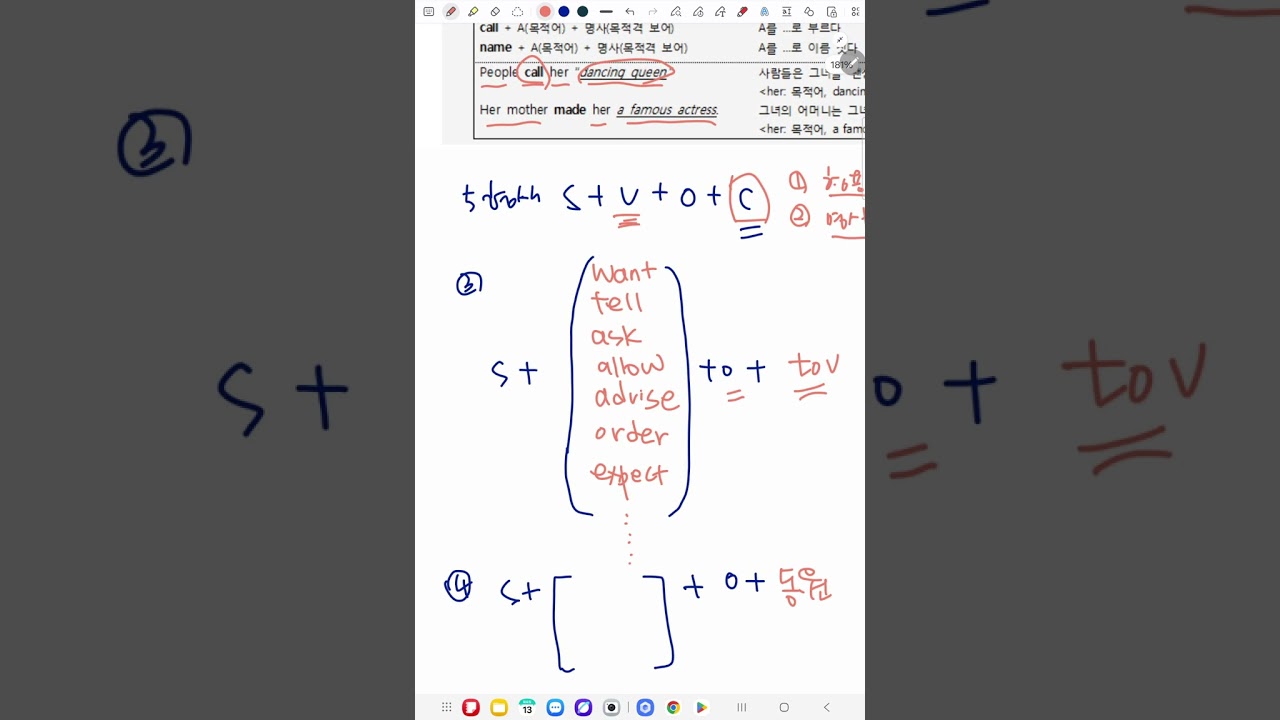 call + A(목적어) + 명사(목적격 보어) A를 …로 부르다
name + A(목적어) + 명사(목적격 보어) A를 …로 이름 짓다
People call her "dancing queen 사람들은 그녀를
<her: 목적어, dancin
Her mother made her a famous actress. 그녀의 어머니는 그녀
<her: 목적어, a famo
181%
S + V + O + C ①
②
③
want
tell
ask
S + allow + O + to V
advise
order
expect
④ S + [ ] + O + 동원
13
③
S + O + to V